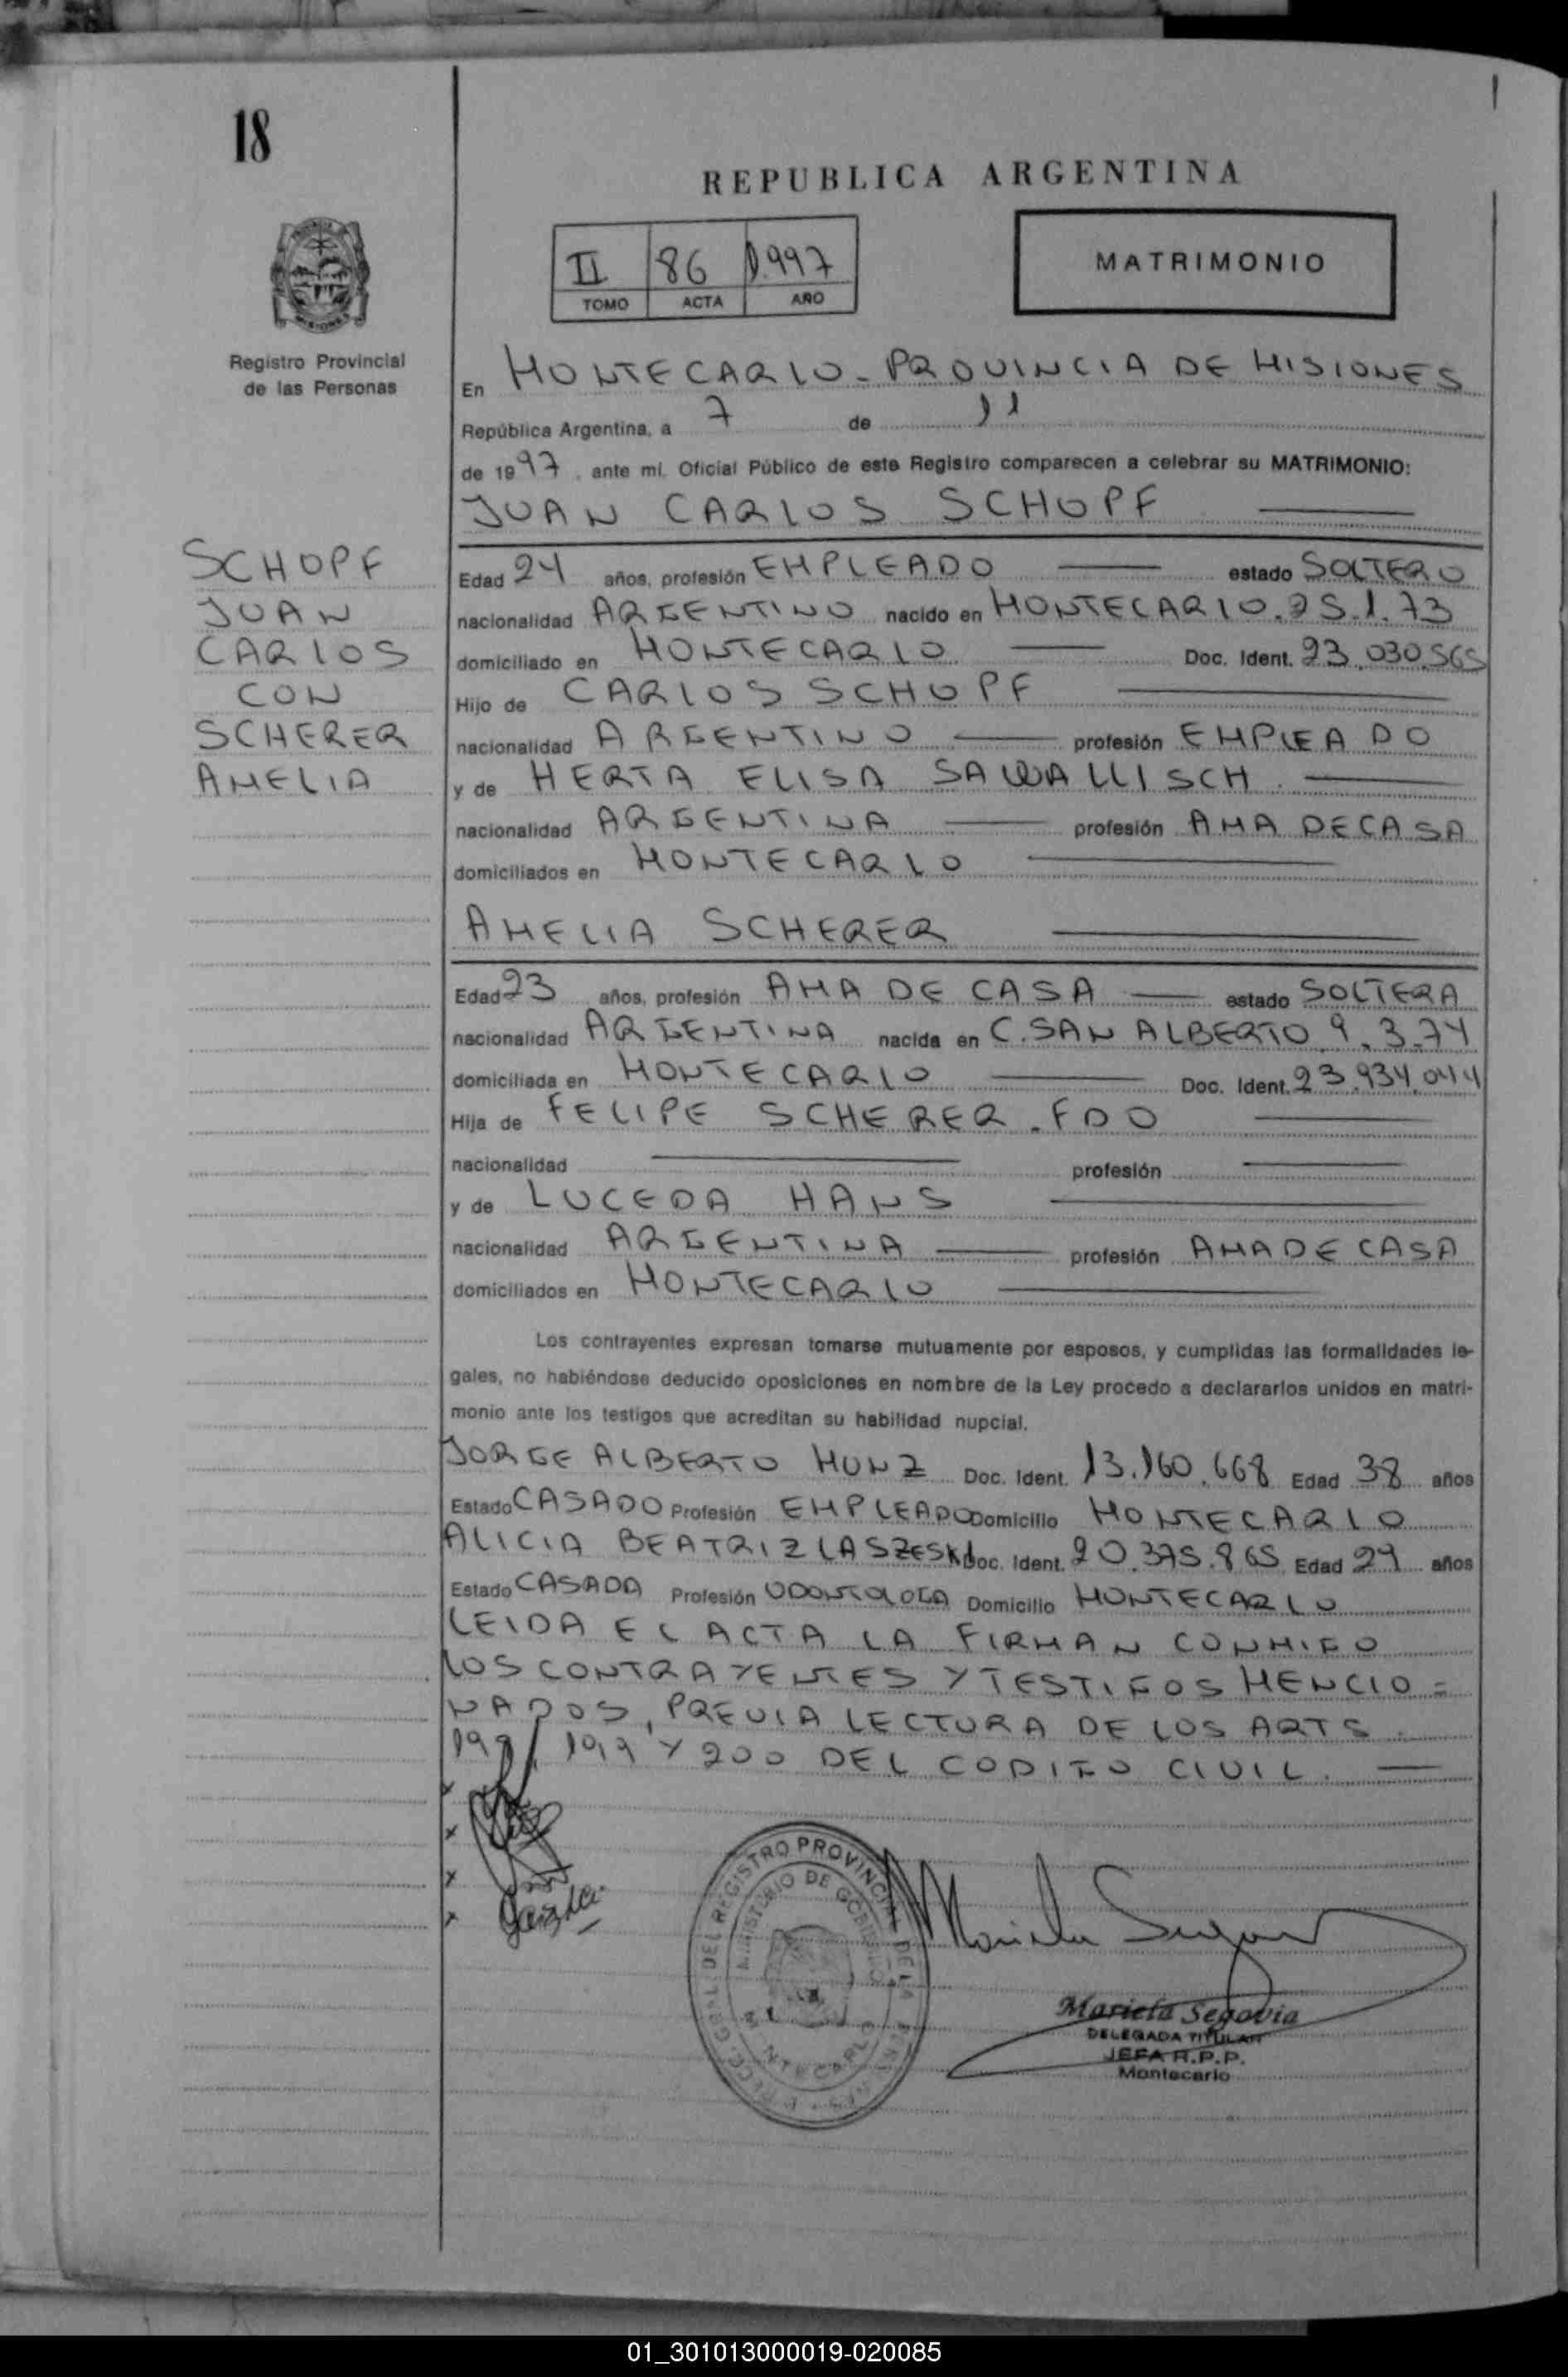 18
REPUBLICA ARGENTINA
II 86 1.997
TOMO ACTA AÑO
MATRIMONIO
Registro Provincial
de las Personas
En MONTECARLO - PROVINCIA DE MISIONES
República Argentina, a 7 de 11
de 1997, ante mí, Oficial Público de este Registro comparecen a celebrar su MATRIMONIO:
JUAN CARLOS SCHOPF
SCHOPF
JUAN
CARLOS
CON
SCHERER
AMELIA
Edad 24 años, profesión EMPLEADO estado SOLTERO
nacionalidad ARGENTINO nacido en MONTECARLO. 25.1.73
domiciliado en MONTECARLO Doc. Ident. 23.030.565
Hijo de CARLOS SCHOPF
nacionalidad ARGENTINO profesión EMPLEADO
y de HERTA ELISA SAWALLISCH
nacionalidad ARGENTINA profesión AMA DE CASA
domiciliados en MONTECARLO
AMELIA SCHERER
Edad 23 años, profesión AMA DE CASA estado SOLTERA
nacionalidad ARGENTINA nacida en C. SAN ALBERTO 9.3.74
domiciliada en MONTECARLO Doc. Ident. 23.934.044
Hija de FELIPE SCHERER. FDO
nacionalidad profesión
y de LUCEDA HANS
nacionalidad ARGENTINA profesión AMA DE CASA
domiciliados en MONTECARLO
Los contrayentes expresan tomarse mutuamente por esposos, y cumplidas las formalidades le-
gales, no habiéndose deducido oposiciones en nombre de la Ley procedo a declararlos unidos en matri-
monio ante los testigos que acreditan su habilidad nupcial.
JORGE ALBERTO MUNZ Doc. Ident. 13.160.668 Edad 38 años
Estado CASADO Profesión EMPLEADO Domicilio MONTECARLO
ALICIA BEATRIZ LASZESKI Doc. Ident. 20.375.865 Edad 29 años
Estado CASADA Profesión ODONTOLOGA Domicilio MONTECARLO
LEIDA EL ACTA LA FIRMAN CONMIGO
LOS CONTRAYENTES Y TESTIGOS MENCIO=
NADOS, PREVIA LECTURA DE LOS ARTS.
198, 199 Y 200 DEL CODIGO CIVIL.
x
x
x
x
REGISTRO PROVINCIAL DE LAS
MINISTERIO DE GOBIERNO
MONTECARLO
Mariela Segovia
DELEGADA TITULAR
JEFA R.P.P.
Montecarlo
01_301013000019-020085